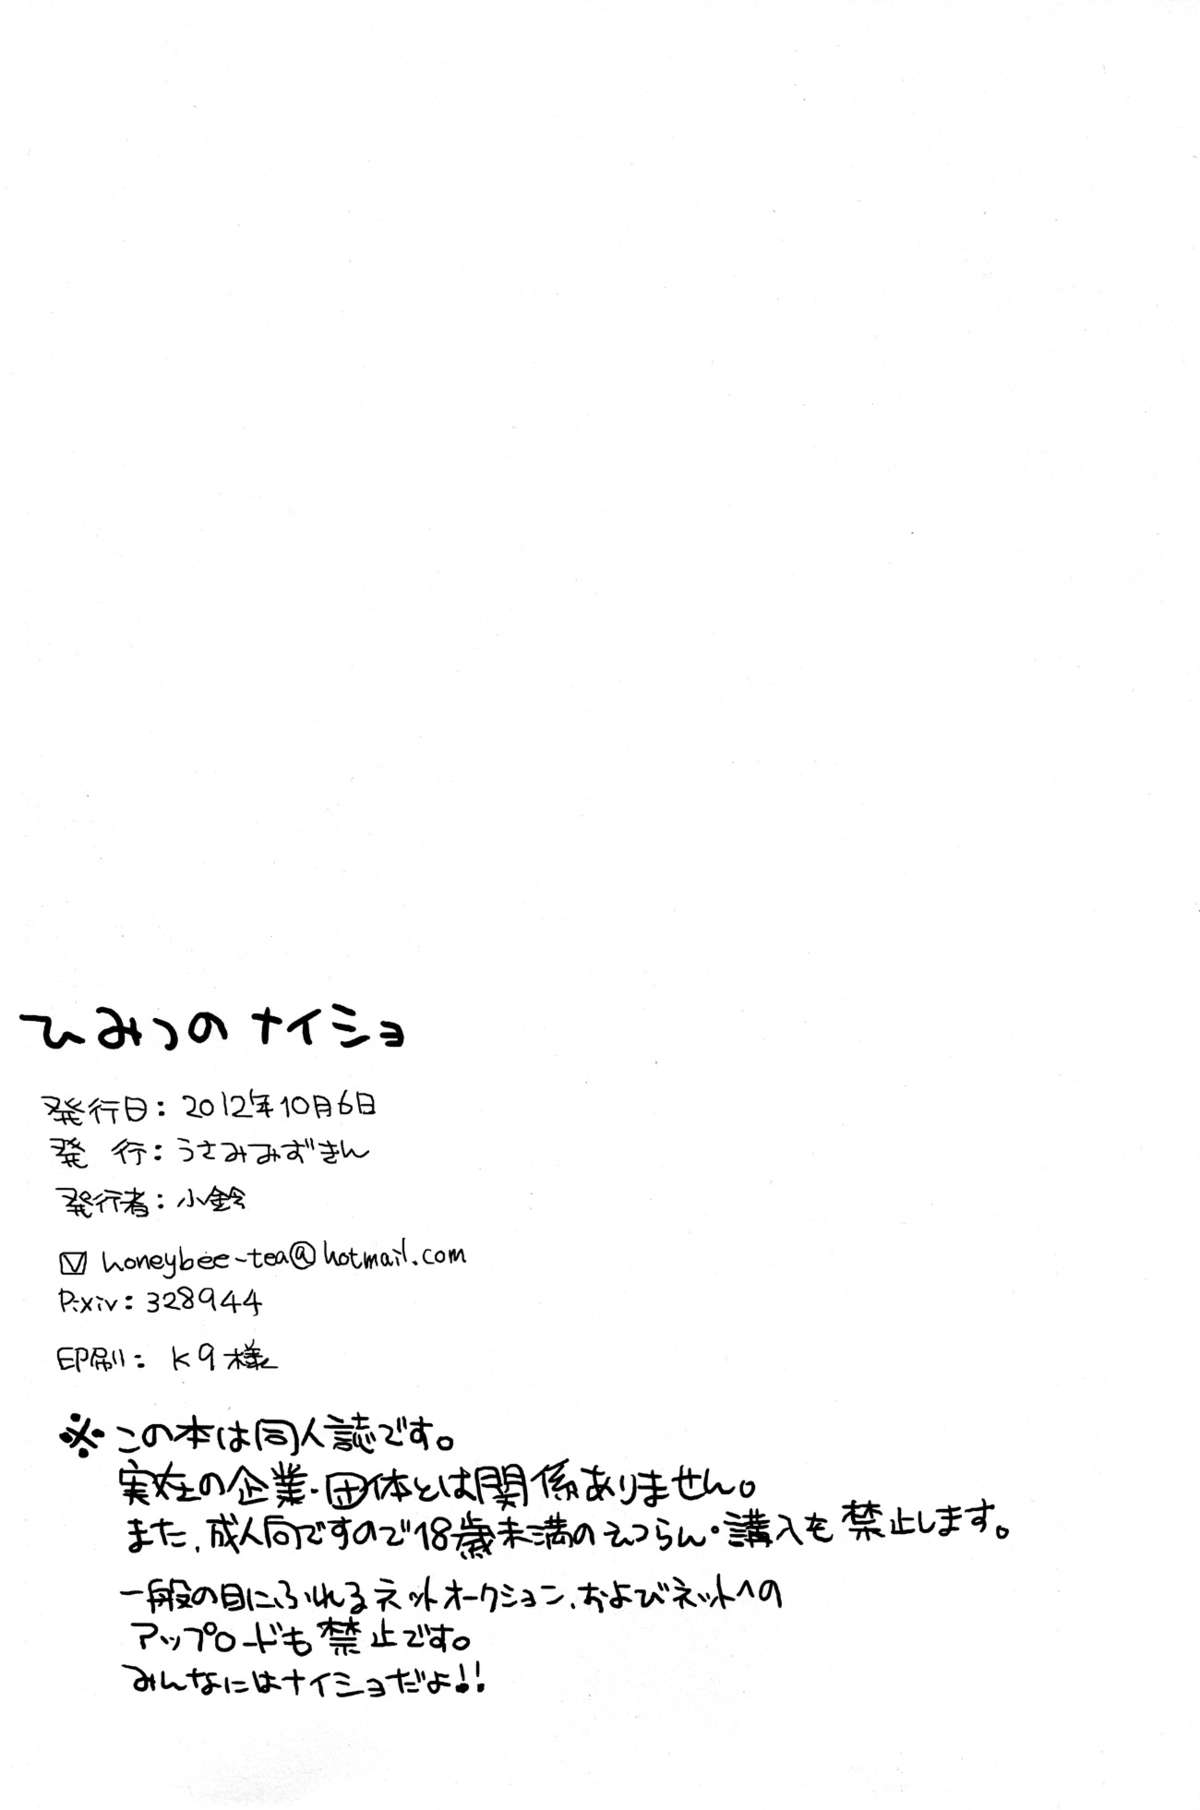 ひみつのナイショ
発行日：2012年10月6日
発　行：うさみみずきん
発行者：小鈴
honeybee-tea@hotmail.com
Pixiv：328944
印刷：K9様
※この本は同人誌です。
実在の企業・団体とは関係ありません。
また、成人向ですので18歳未満のえつらん・講入を禁止します。
一般の目にふれるネットオークション、およびネットへの
アップロードも禁止です。
みんなにはナイショだよ!!